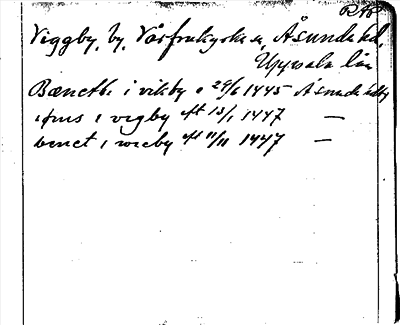 RAp
Viggby, by, Vårfrukyrka sn, Åsunda hd,
Uppsala län
Bæncthe i vikby o 29/6 1445 Åsunda hdg
i vigby eft 13/1 1447 —
benct i wieby eft 11/11 1447 —